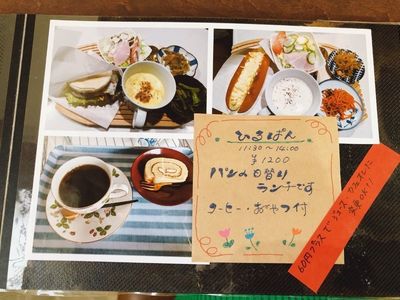 ひるぱん
11:30〜14:00
¥1200
パンの日替り
ランチです
コーヒー・おやつ付
60円プラスでジュース カフェオレに
変更OK!!